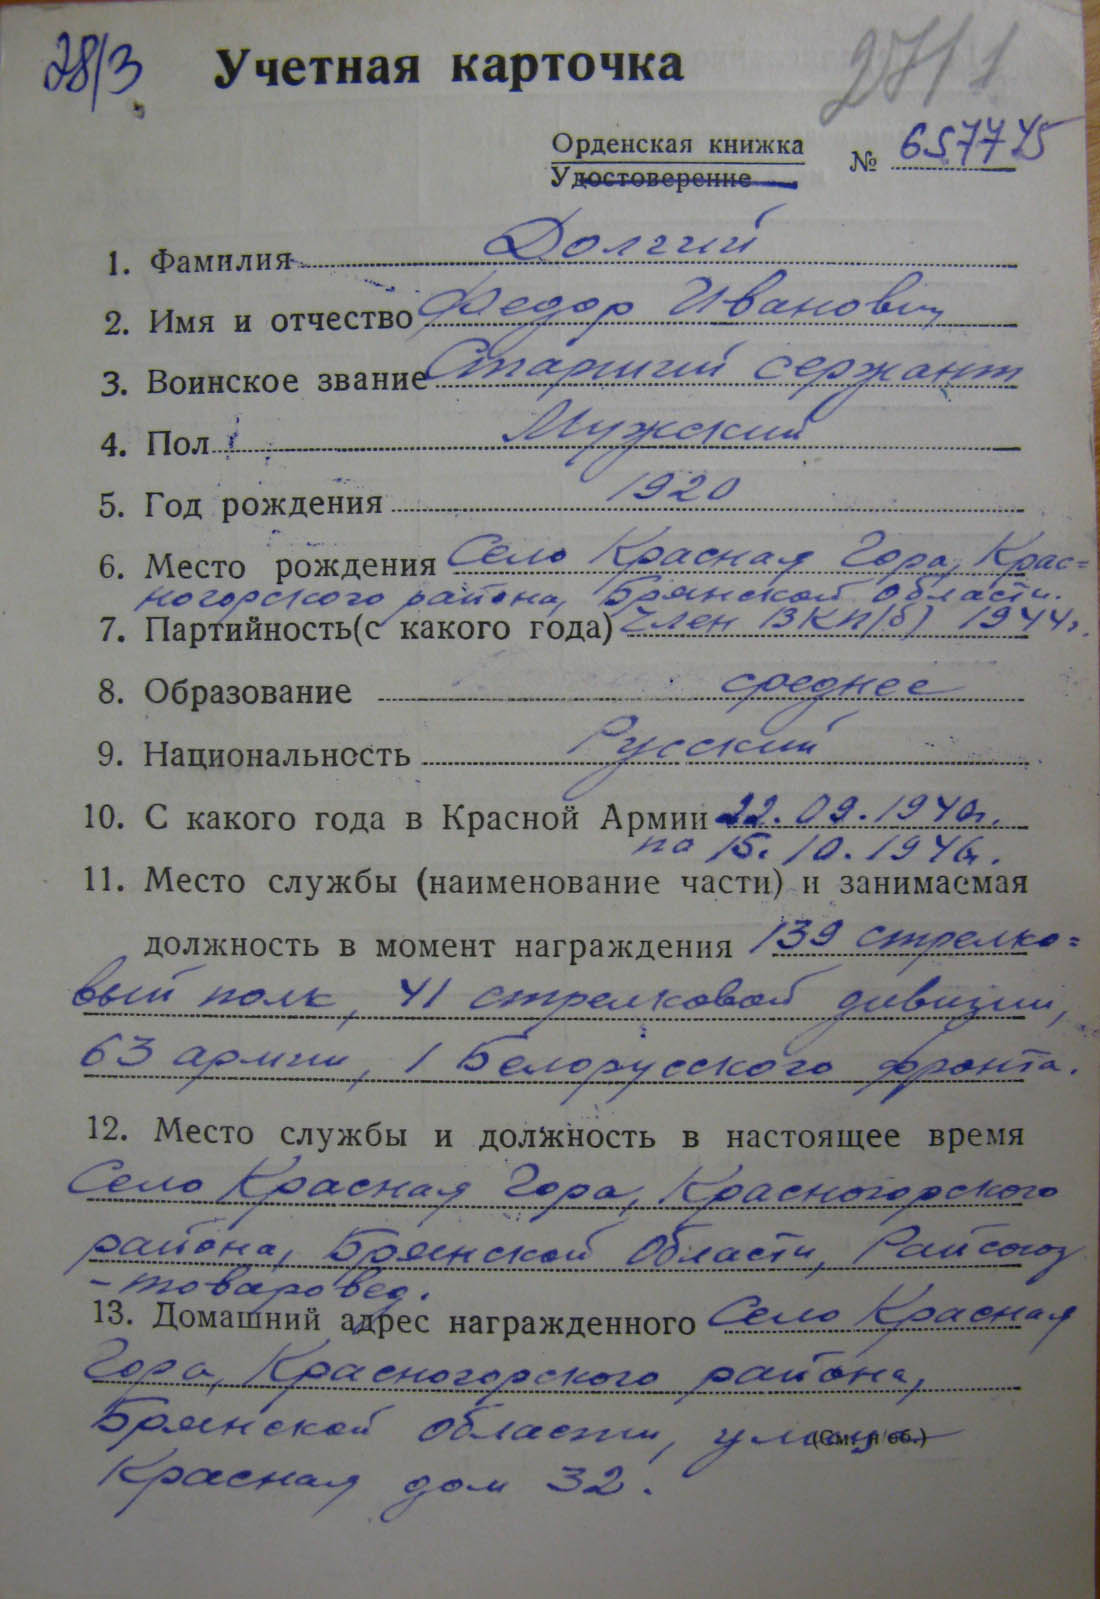 28/3
Учетная карточка
271 1
Орденская книжка
Удостоверение
№ 657745
1. Фамилия Долгий
2. Имя и отчество Федор Иванович
3. Воинское звание Старший сержант
4. Пол Мужской
5. Год рождения 1920
6. Место рождения Село Красная Гора, Крас=
ногорского района, Брянской области.
7. Партийность(с какого года) Член ВКП/б) 1944г.
8. Образование среднее
9. Национальность Русский
10. С какого года в Красной Армии 22.09.1940г.
по 15.10.1946г.
11. Место службы (наименование части) и занимаемая
должность в момент награждения 139 стрелко=
вый полк, 41 стрелковой дивизии,
63 армии, 1 Белорусского фронта.
12. Место службы и должность в настоящее время
Село Красная Гора, Красногорского
района, Брянской области, Райсоюз
- товаровед.
13. Домашний адрес награжденного Село Красная
Гора, Красногорского района,
Брянской области, улица
(См. н/об.)
Красная дом 32.